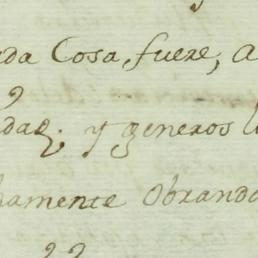 ada Cosa, fuere, a
dad; y generos l
hamente Obrando